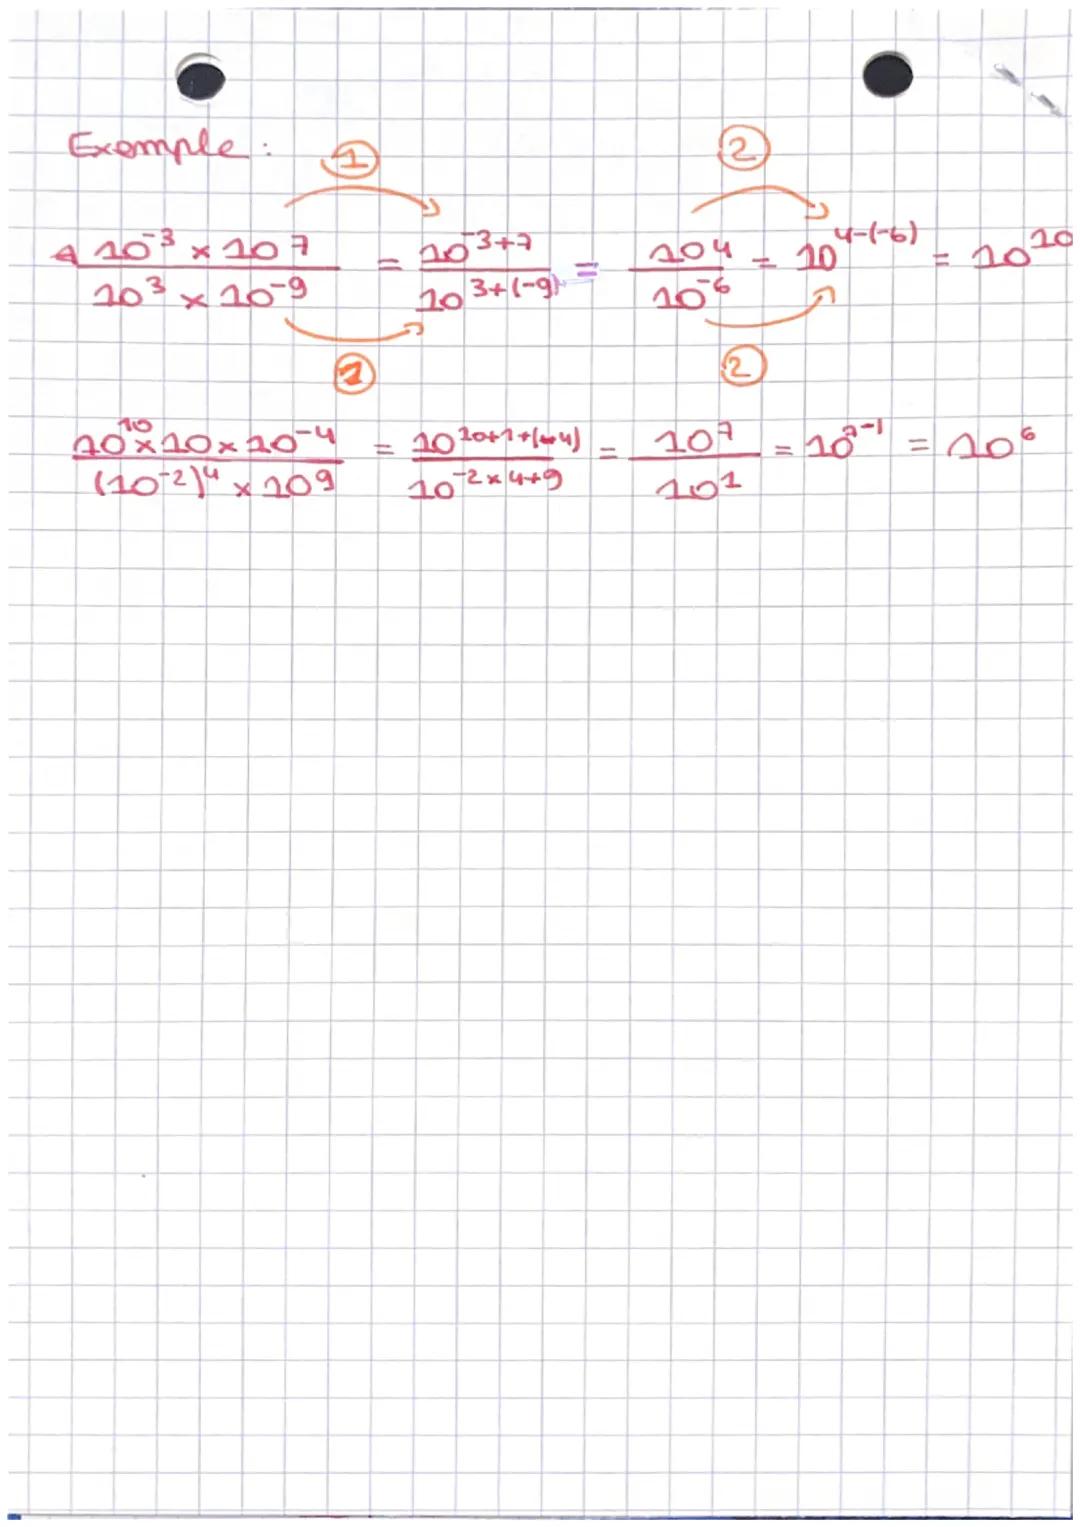 Exemple :
① ②
10⁻³ × 10⁷ / 10³ × 10⁻⁹ = 10⁻³⁺⁷ / 10³⁺⁽⁻⁹⁾ = 10⁴ / 10⁻⁶ = 10⁴⁻⁽⁻⁶⁾ = 10¹⁰
① ②
10¹⁰ × 10 × 10⁻⁴ / (10⁻²)⁴ × 10⁹ = 10¹⁰⁺¹⁺⁽⁻⁴⁾ / 10⁻²ˣ⁴⁺⁹ = 10⁷ / 10¹ = 10⁷⁻¹ = 10⁶